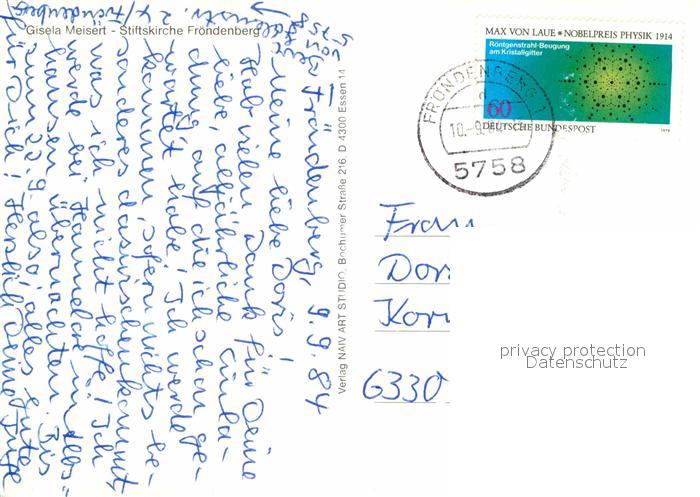 Gisela Meisert - Stiftskirche Fröndenberg
Fröndenberg, 9.9.84
Meine liebe Doris!
Hab vielen Dank für Deine
liebe, alljährliche Einla-
dung, auf die ich schon ge-
wartet habe! Ich werde
kommen, sofern nichts be-
sonderes dazwischenkommt
was ich nicht hoffe! Ich
werde bei Hannelore
übernachten. Bis
zum 22.9. also! alles Gute
für Dich! Herzlich Deine
Verlag NAIV ART STUDIO, Bochumer Straße 216, D 4300 Essen 14
MAX VON LAUE * NOBELPREIS PHYSIK 1914
Röntgenstrahl-Beugung
am Kristallgitter
60
DEUTSCHE BUNDESPOST
1979
FRÖNDENBERG 1
10.-9.84
5758
Frau
Dor
Kor
6330
privacy protection
Datenschutz